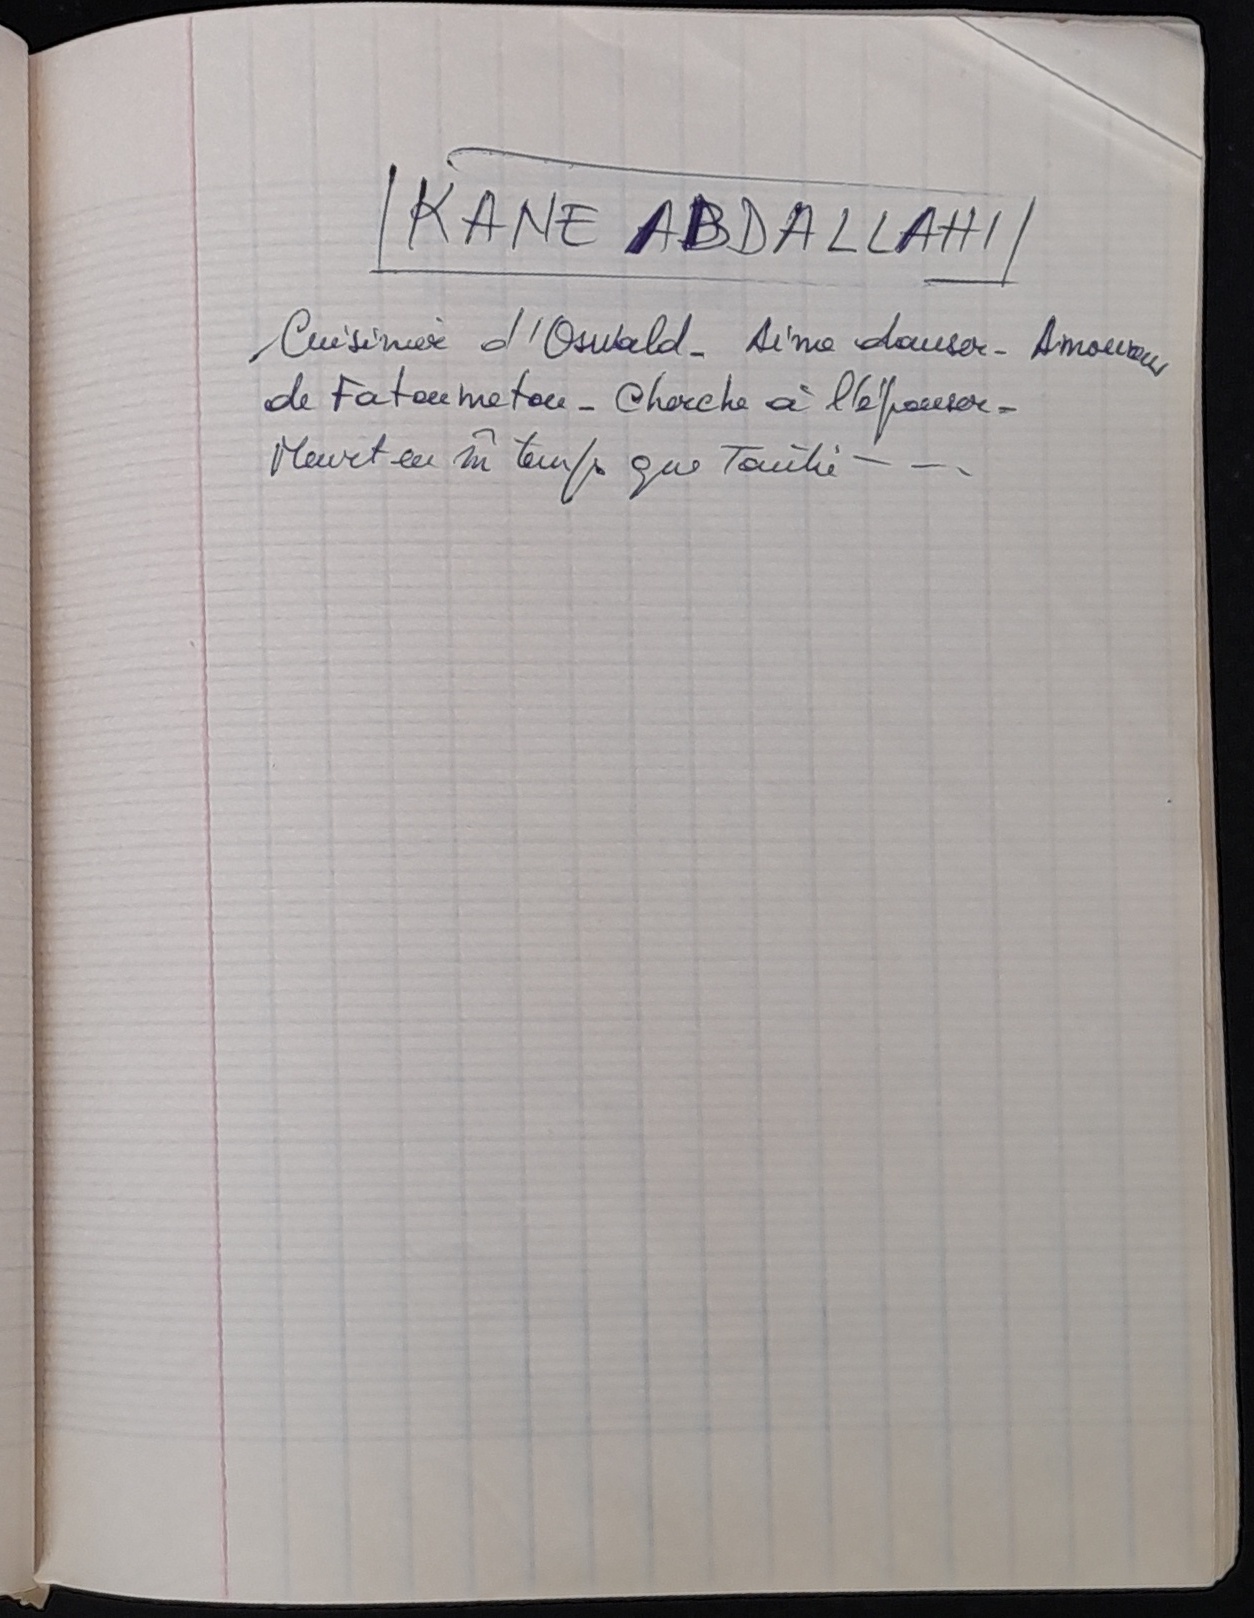 KANE ABDALLAHI
Cuisinier d'Oswald - Aime danser - Amoureux
de Fatoumetou - Cherche à l'épouser -
Meurt en m̂ temps que